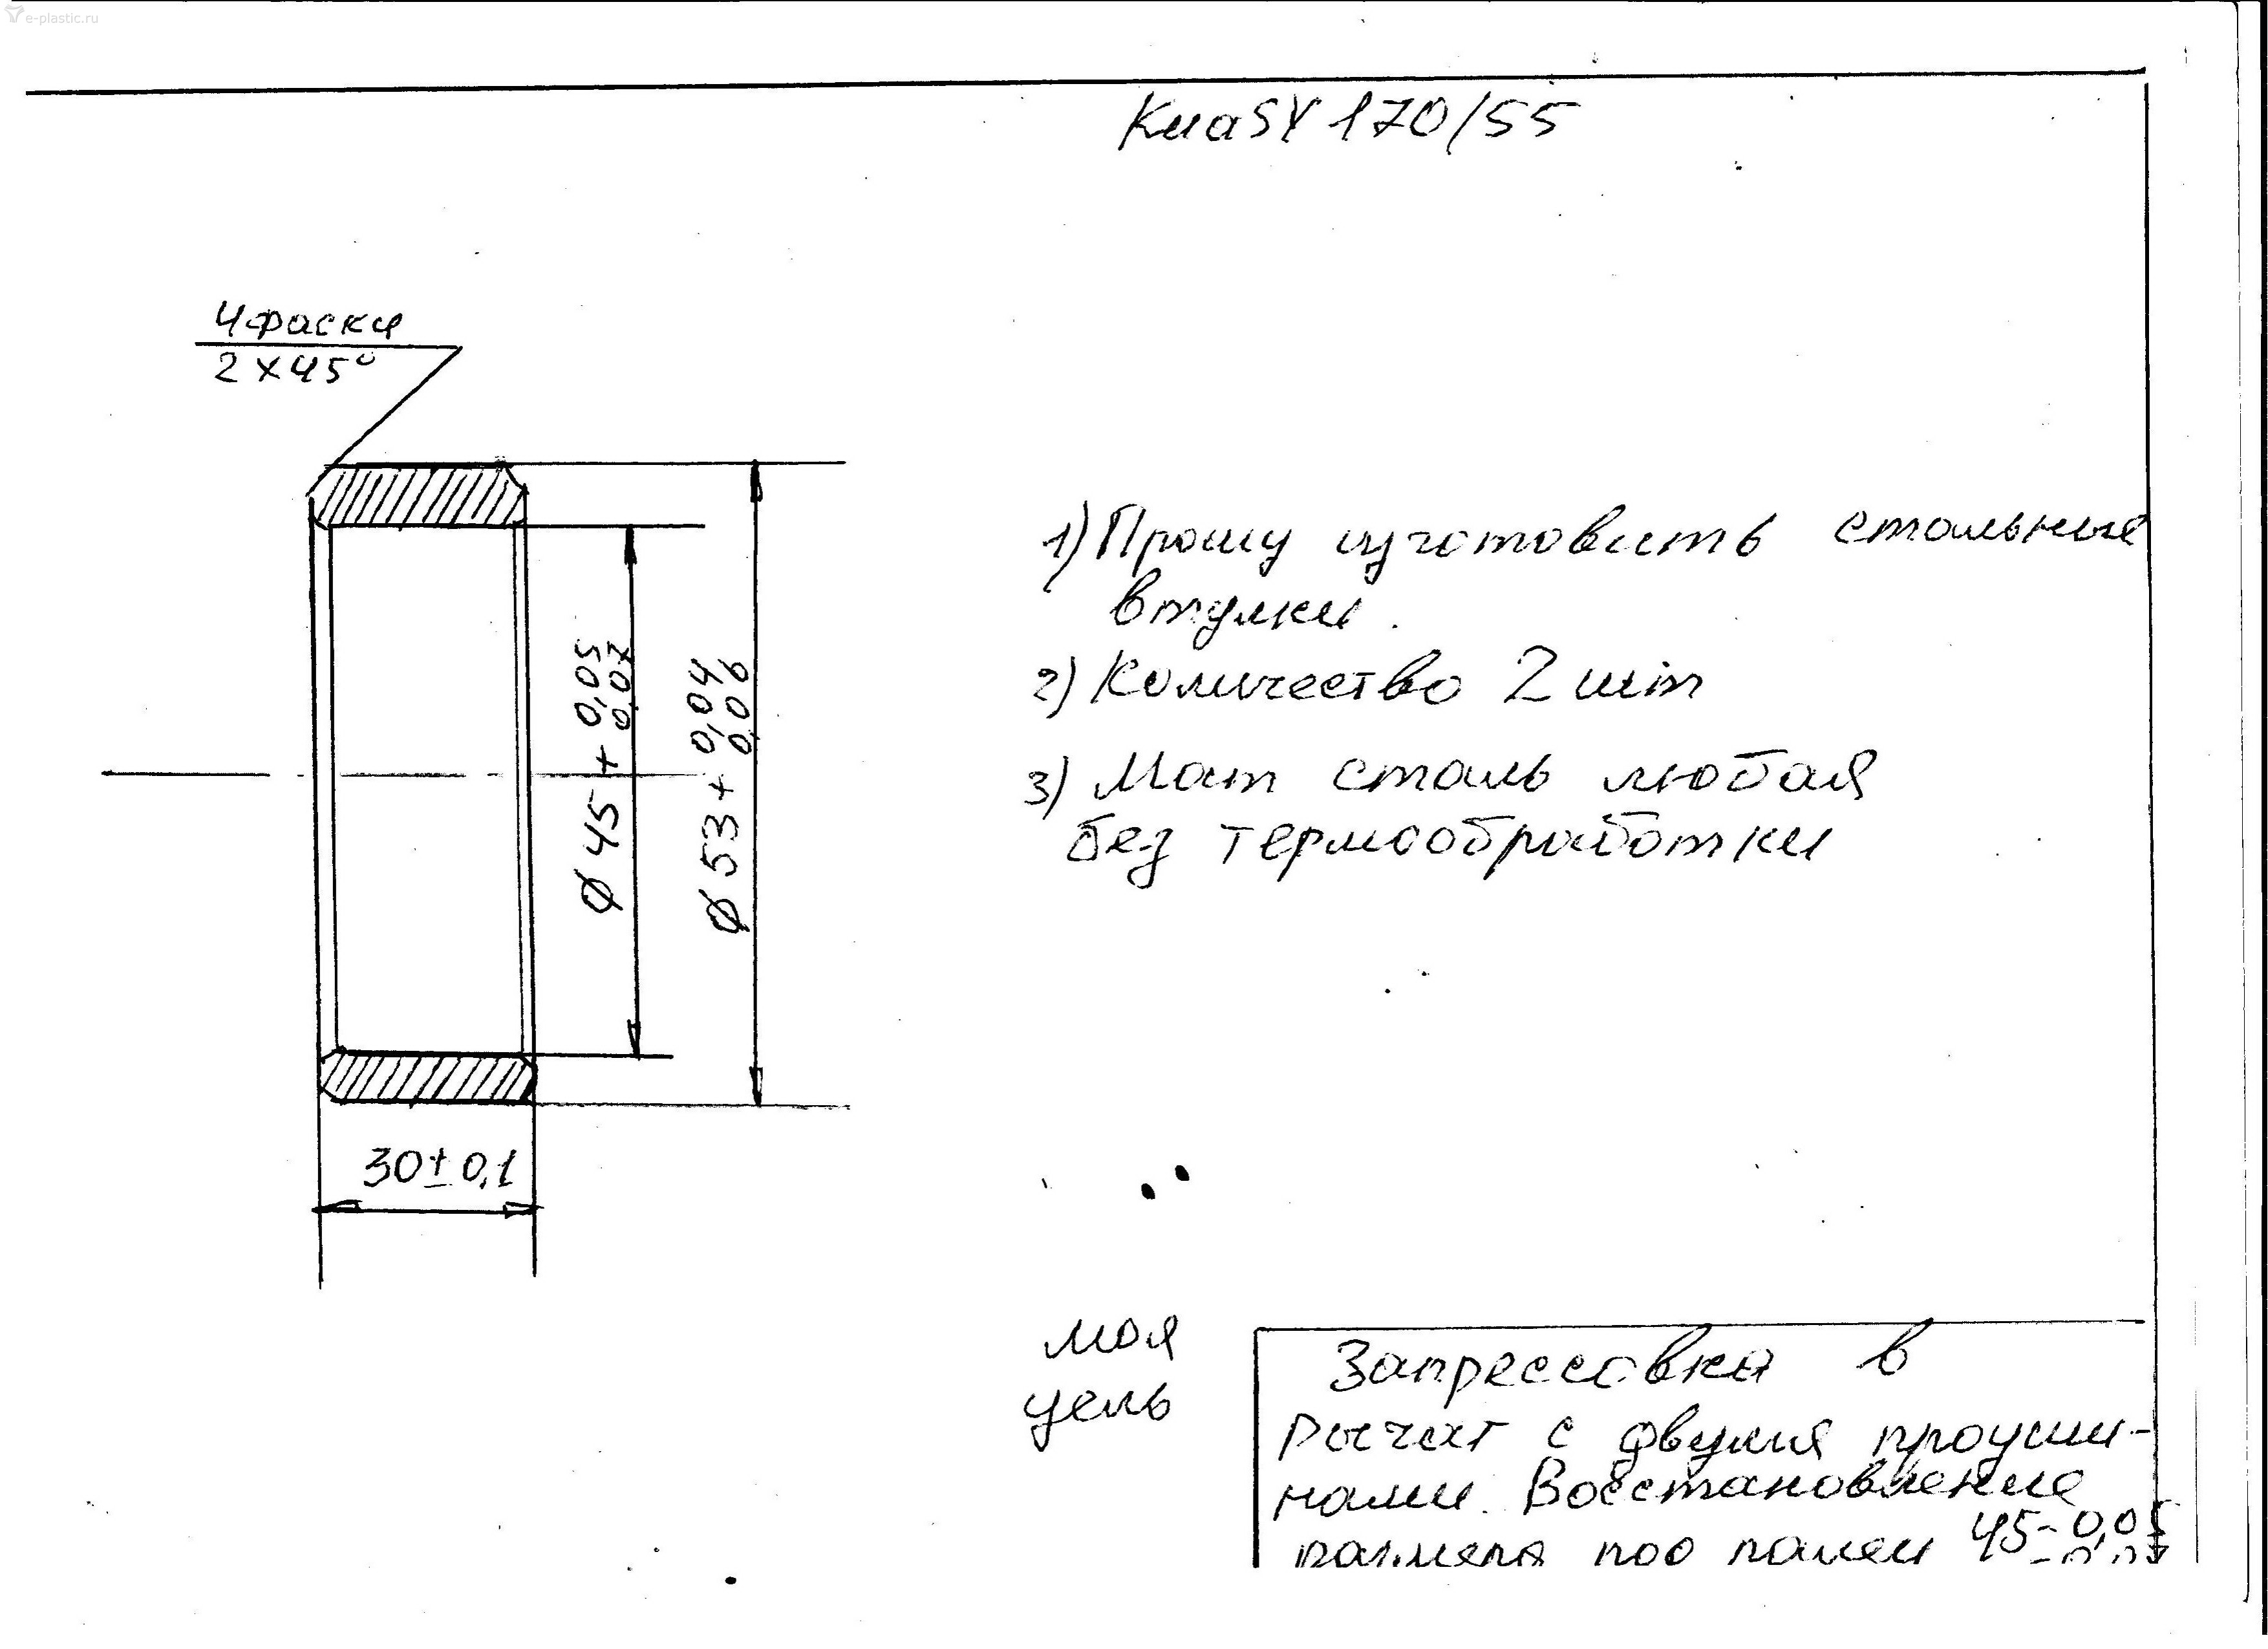 e-plastic.ru
КиаSY 170/55
4 фаски
2 x 45°
1) Прошу изготовить стальные
втулки.
2) Количество 2 шт
3) Мат сталь любая
без термообработки
Ø 45 + 0,05
0,07
Ø 53 + 0,04
0,06
30 ± 0,1
моя
цель
Запрессовка в
Рычаг с двумя проуши-
нами. Восстановление
размера под палец 45 - 0,05